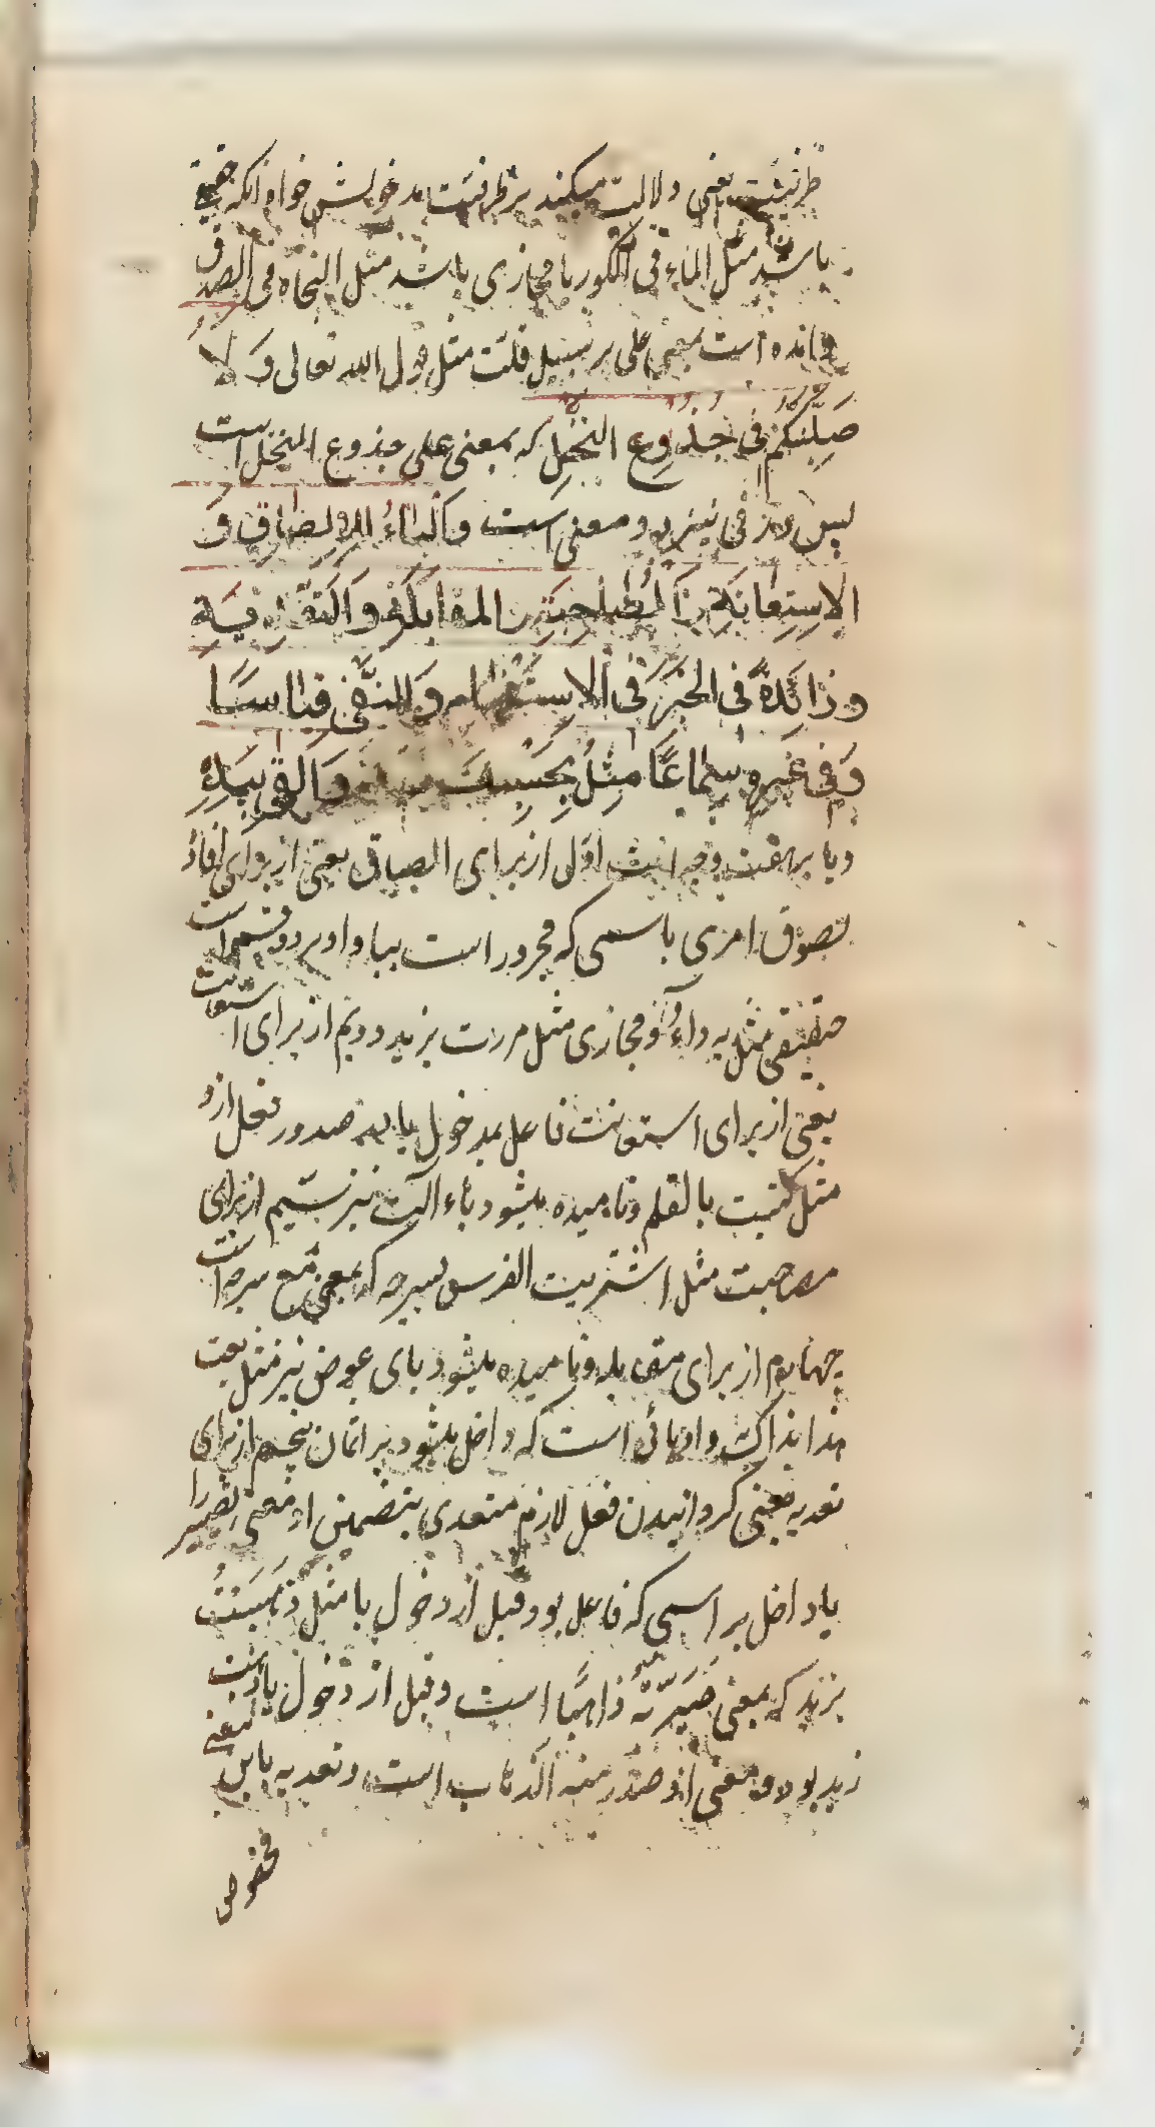 ظرفیّت یعنی دلالت میکند بر ظرفیّت مدخولش خواه انکه حقیقة
باشد مثل الماء فی الکوز یا مجازی باشد مثل النجاة فی الصدق
و امده است بمعنی علی بر سبیل قلّت مثل قول الله تعالی وَ لَاُ
صَلِّبَنَّکُمْ فی جُذُوعِ النَّخْلِ که بمعنی علی جذوع النخل است
پس فی نیز بدو معنی است وَ الْباءُ لِلْاِلْصاقِ وَ
الاِسْتِعانَةِ وَ الْمُصاحَبَةِ وَ المقابَلَةِ وَ التَّعْدِیَةِ
وَ زائِدَةً فی الخَبَرِ فی الاِسْتِفْهامِ وَ النَّفْی قیاسًا
وَ فی غَیْرِهِ سَماعًا مِثْلُ بِحَسْبِکَ وَ اَلْقی بِیَدِهِ
و با بر هفت وجه است اوّل از برای الصاق یعنی از برای افاده
لصوق امری باسمی که مجرور است ببا و او بر دو قسم است
حقیقی مثل به داءٌ و مجازی مثل مررت بزید دویّم از برای استعانت
یعنی از برای استعانت فاعل بمدخول با در صدور فعل از او
مثل کتبت بالقلم و نامیده میشود باء آلت نیز سیّم از برای
مصاحبت مثل اشتریت الفرس بسرجه که بمعنی مع سرجه است
چهارم از برای مقابله و نامیده میشود بای عوض نیز مثل بعت
هذا بذاک و او بائی است که داخل میشود بر اثمان پنجم از برای
تعدیه یعنی گردانیدن فعل لازم متعدی بتضمین او معنی تصییر را
با داخل بر اسمی که فاعل بود قبل از دخول با مثل ذَهَبْتُ
بزید که بمعنی صَیَّرْتُهُ ذاهبًا است و قبل از دخول با ذهب
زید بود و معنی او صدر منه الذهاب است و تعدیه باین معنی
مخصوص